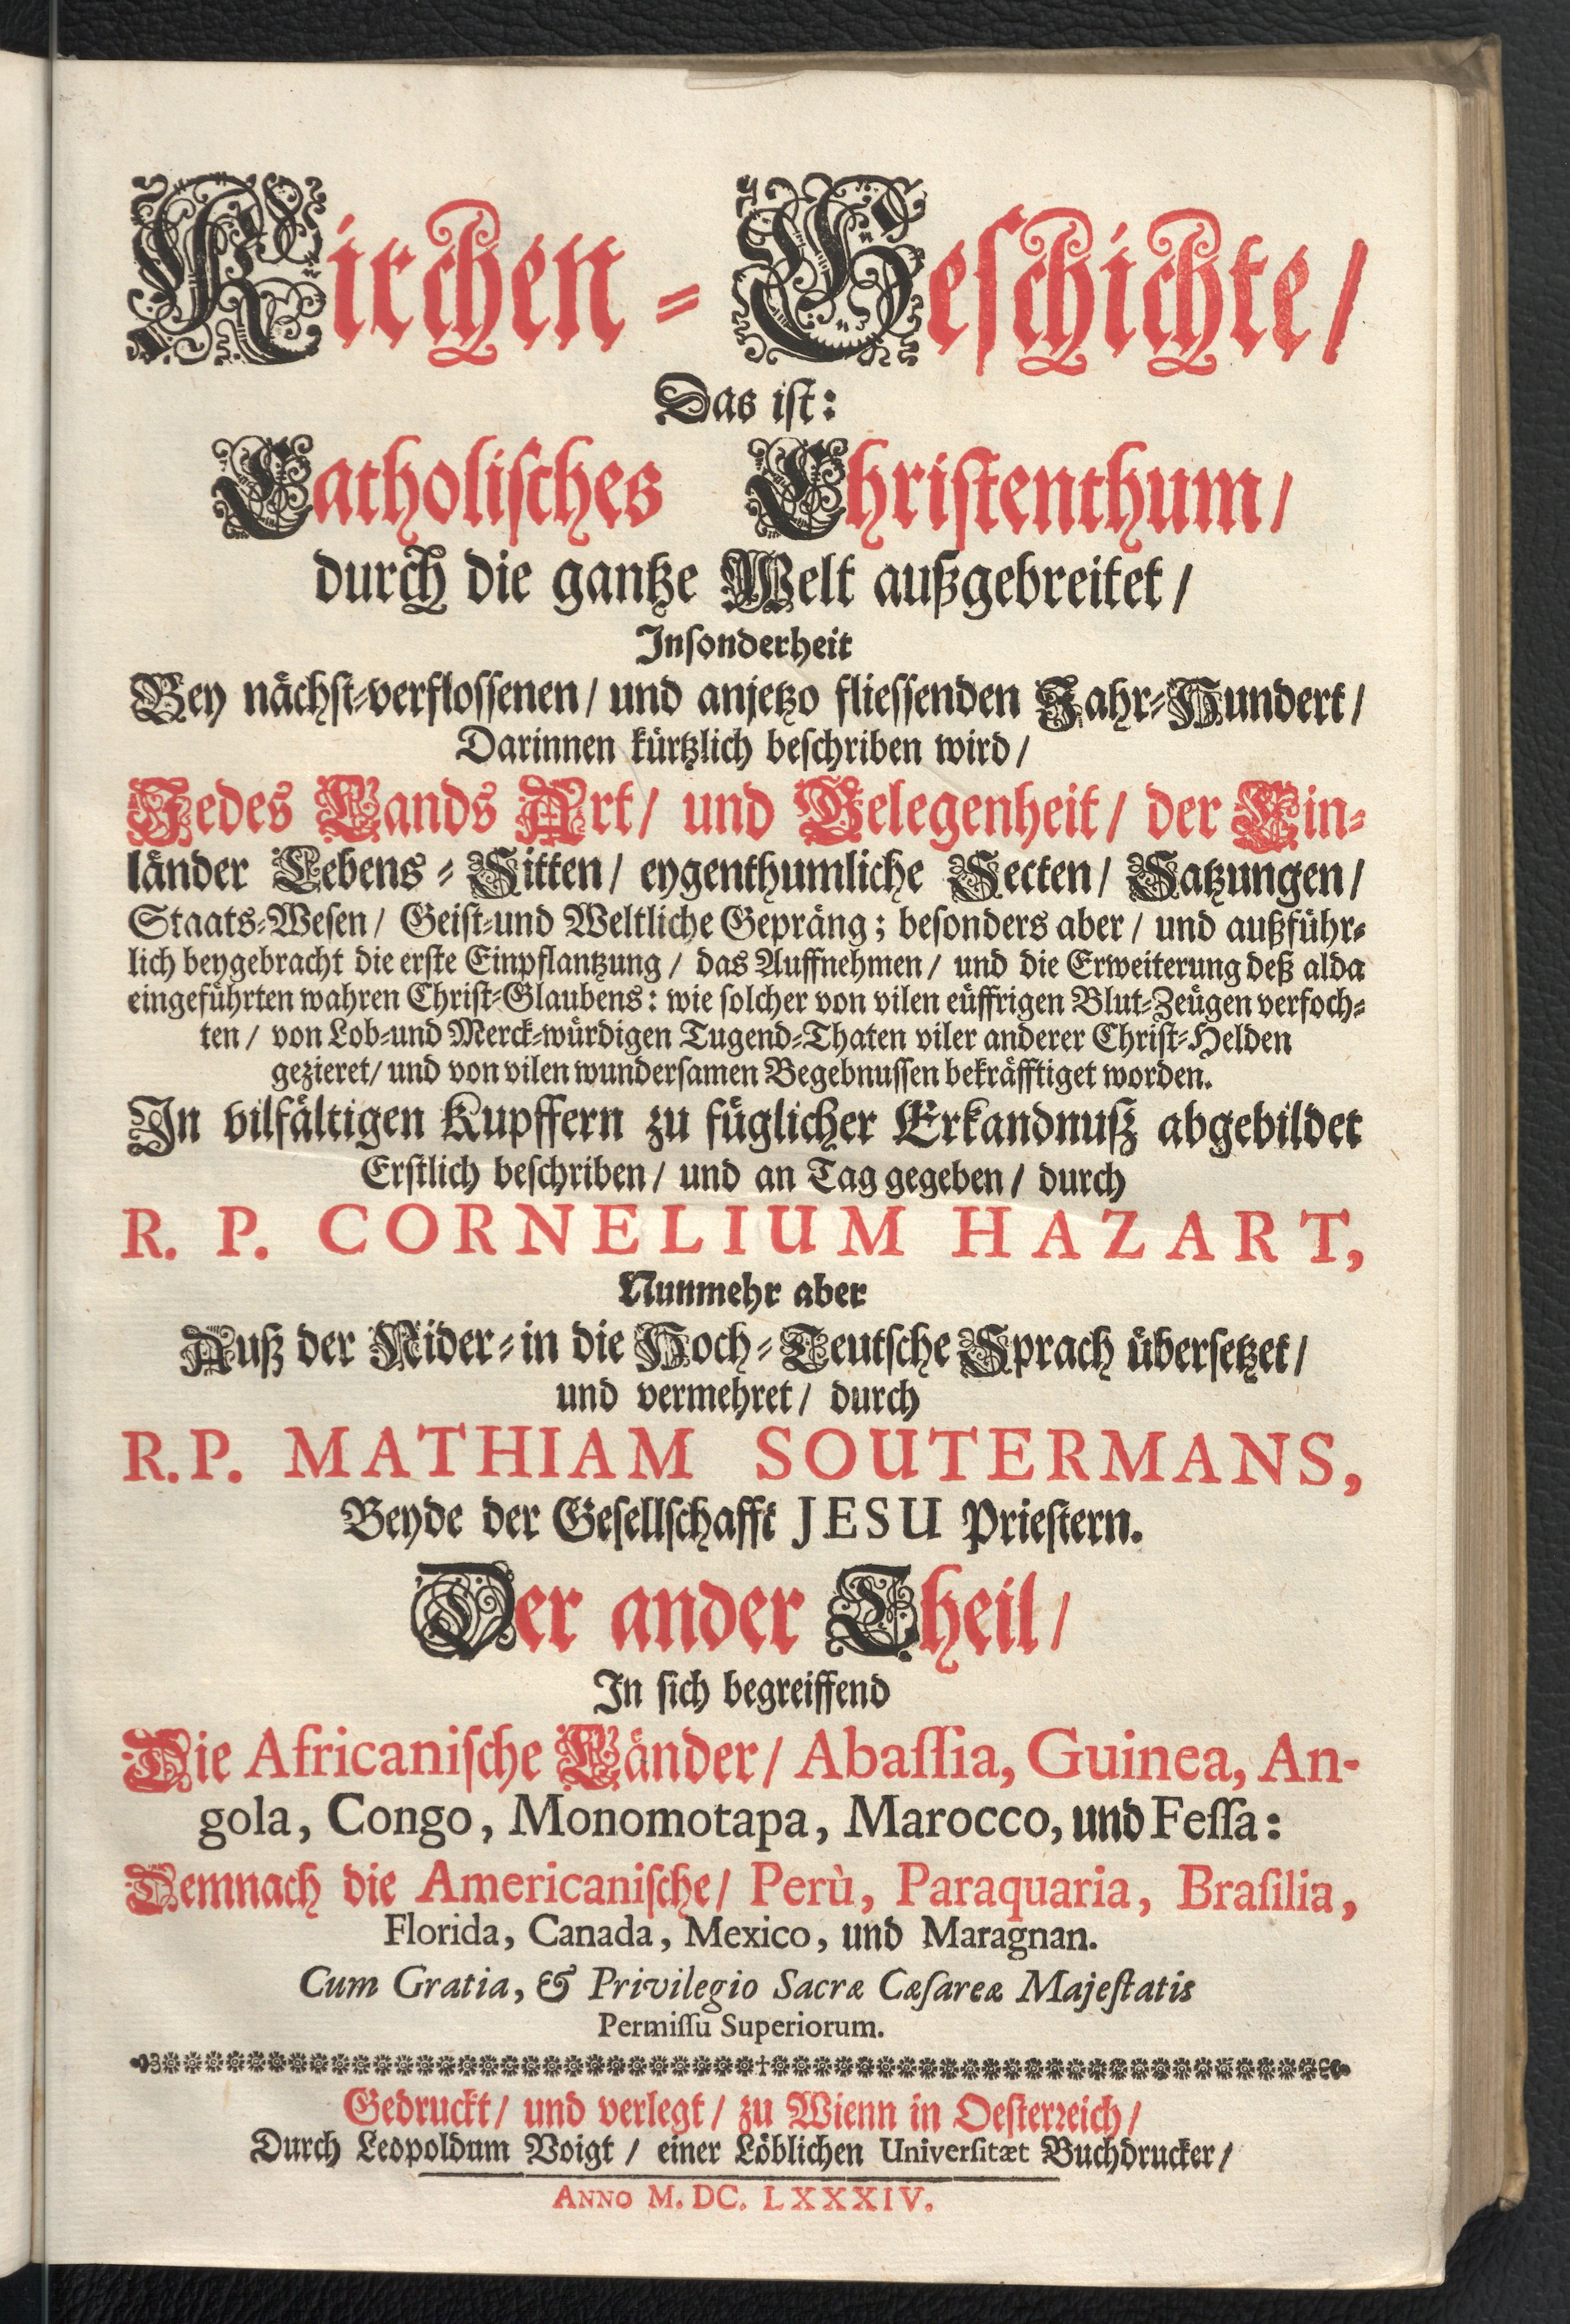 Kirchen-Geschichte/
Das ist:
Catholisches Christenthum/
durch die gantze Welt außgebreitet/
Insonderheit
Bey nächst-verflossenen/ und anjetzo fliessenden Jahr-Hundert/
Darinnen kürtzlich beschriben wird/
Jedes Lands Art/ und Gelegenheit/ der Ein-
länder Lebens-Sitten/ eygenthumliche Secten/ Satzungen/
Staats-Wesen/ Geist-und Weltliche Gepräng; besonders aber/ und außführ-
lich beygebracht die erste Einpflantzung/ das Auffnehmen/ und die Erweiterung deß alda
eingeführten wahren Christ-Glaubens: wie solcher von vilen eüffrigen Blut-Zeügen verfoch-
ten/ von Lob-und Merck-würdigen Tugend-Thaten viler anderer Christ-Helden
gezieret/ und von vilen wundersamen Begebnussen bekräfftiget worden.
In vilfältigen Kupffern zu füglicher Erkandnuß abgebildet
Erstlich beschriben/ und an Tag gegeben/ durch
R. P. CORNELIUM HAZART,
Nunmehr aber
Auß der Nider-in die Hoch-Teutsche Sprach übersetzet/
und vermehret/ durch
R. P. MATHIAM SOUTERMANS,
Beyde der Gesellschafft JESU Priestern.
Der ander Theil/
In sich begreiffend
Die Africanische Länder/ Abaſſia, Guinea, An-
gola, Congo, Monomotapa, Marocco, und Feſſa:
Demnach die Americanische/ Perù, Paraquaria, Braſilia,
Florida, Canada, Mexico, und Maragnan.
Cum Gratia, & Privilegio Sacræ Cæſareæ Majeſtatis
Permiſſu Superiorum.
Gedruckt/ und verlegt/ zu Wienn in Oesterreich/
Durch Leopoldum Voigt/ einer Löblichen Univerſitæt Buchdrucker/
ANNO M. DC. LXXXIV.